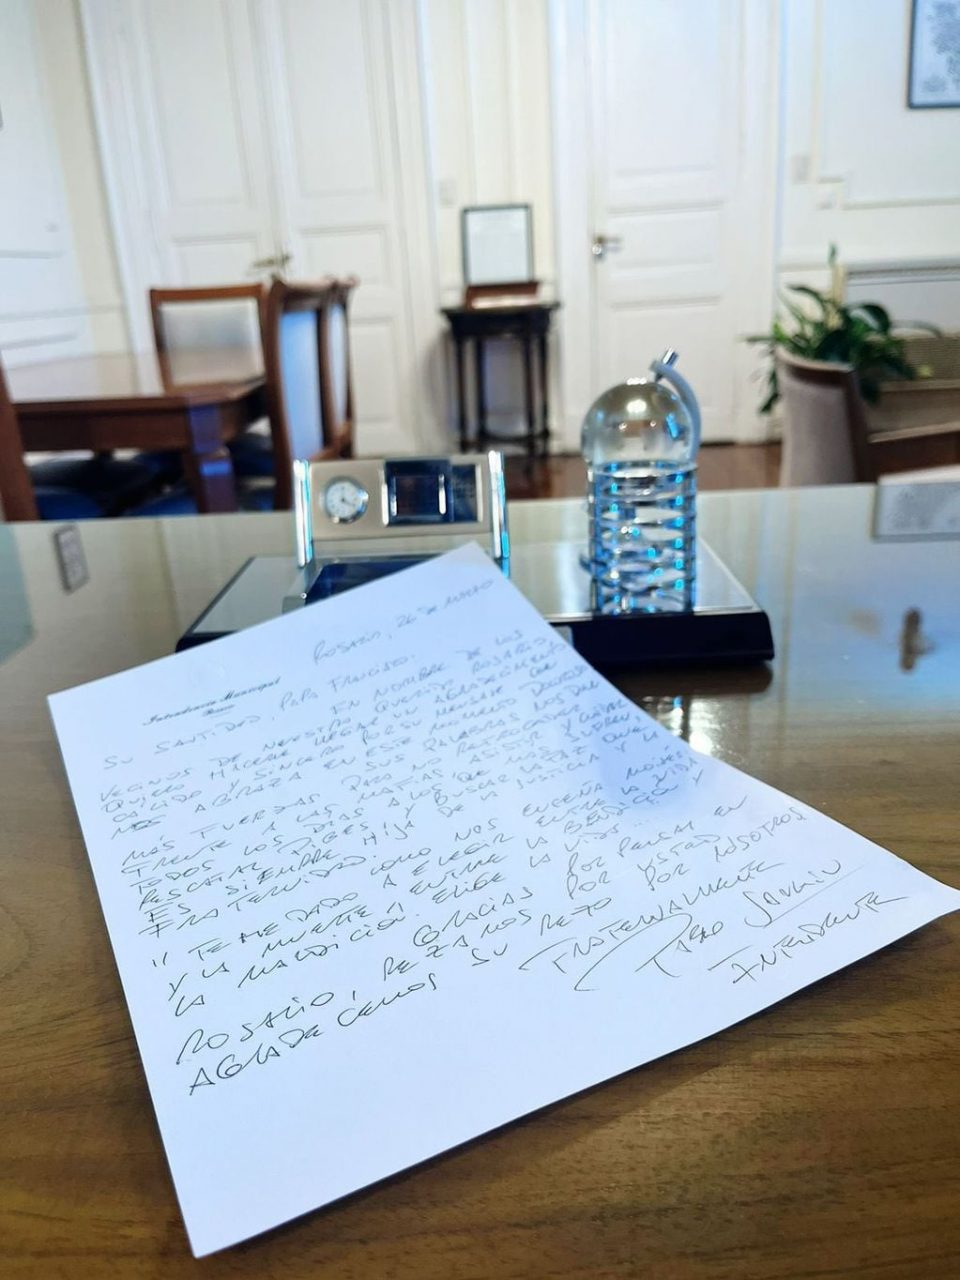 Intendencia Municipal
Rosario
ROSARIO, 26 DE MARZO
SU SANTIDAD, PAPA FRANCISCO.
EN NOMBRE DE LOS
VECINOS DE NUESTRO QUERIDO ROSARIO,
QUIERO HACERLE LLEGAR UN AGRADECIMIENTO
CALIDO Y SINCERO POR SU MENSAJE QUE
NOS ABRAZA EN ESTE MOMENTO DOLOROSO
SUS PALABRAS NOS DAN
MÁS FUERZAS PARA NO RETROCEDER
FRENTE A LAS MAFIAS, ASISTIR Y CUIDAR
TODOS LOS DIAS A LOS QUE MÁS SUFREN,
RESCATAR PIBES Y BUSCAR LA PAZ QUE
ES SIEMPRE HIJA DE LA JUSTICIA Y LA
FRATERNIDAD COMO NOS ENSEÑA MOISÉS:
"TE HE DADO A ELEGIR ENTRE LA VIDA
Y LA MUERTE, ENTRE LA BENDICIÓN Y
LA MALDICIÓN. ELIGE LA VIDA..."
GRACIAS POR PENSAR EN
ROSARIO, REZAMOS POR USTED Y
AGRADECEMOS SU REZO POR NOSOTROS
FRATERNALMENTE
PABLO JAVKIN
INTENDENTE